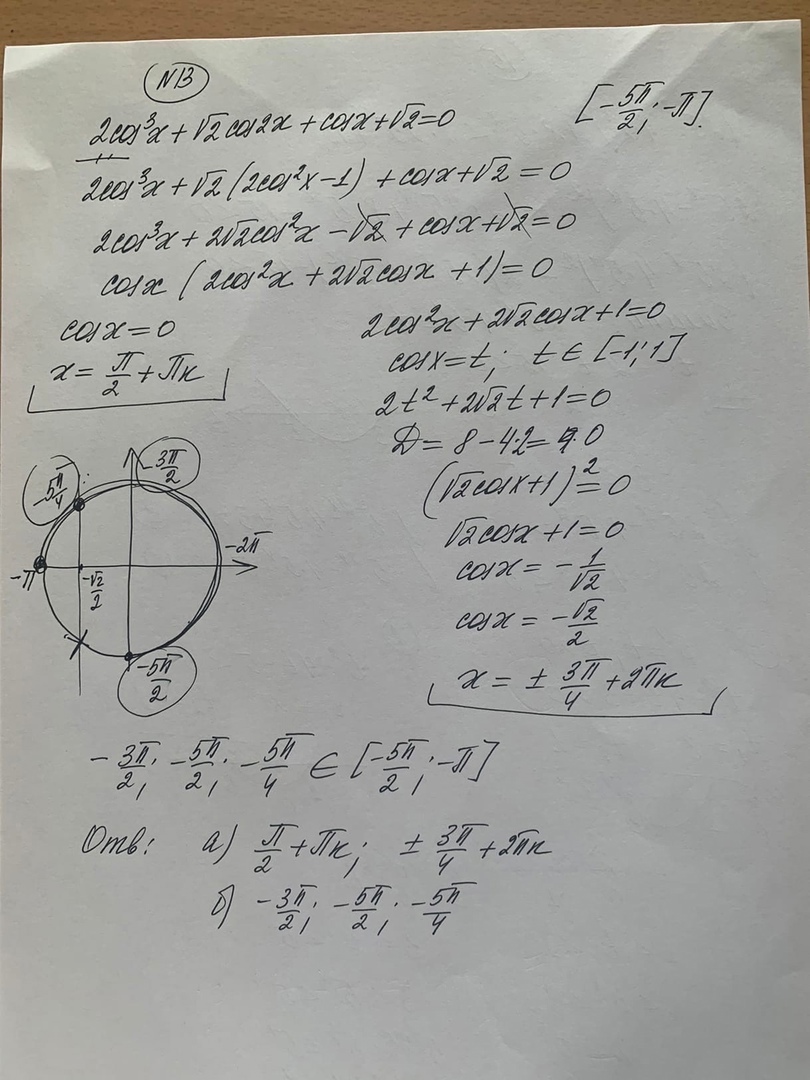 N13
2cos³x + √2 cos2x + cosx + √2 = 0
[-5π/2; -π].
2cos³x + √2 (2cos²x - 1) + cosx + √2 = 0
2cos³x + 2√2cos²x - √2 + cosx + √2 = 0
cosx (2cos²x + 2√2cosx + 1) = 0
cosx = 0
x = π/2 + πк
2cos²x + 2√2cosx + 1 = 0
cosx = t; t ∈ [-1; 1]
2t² + 2√2t + 1 = 0
D = 8 - 4·2 = 0
(√2cosx + 1)² = 0
√2cosx + 1 = 0
cosx = -1/√2
cosx = -√2/2
x = ± 3π/4 + 2πк
-3π/2
-5π/4
-2π
-π
-√2/2
-5π/2
-3π/2; -5π/2; -5π/4 ∈ [-5π/2; -π]
Отв: а) π/2 + πк; ± 3π/4 + 2πк
б) -3π/2; -5π/2; -5π/4